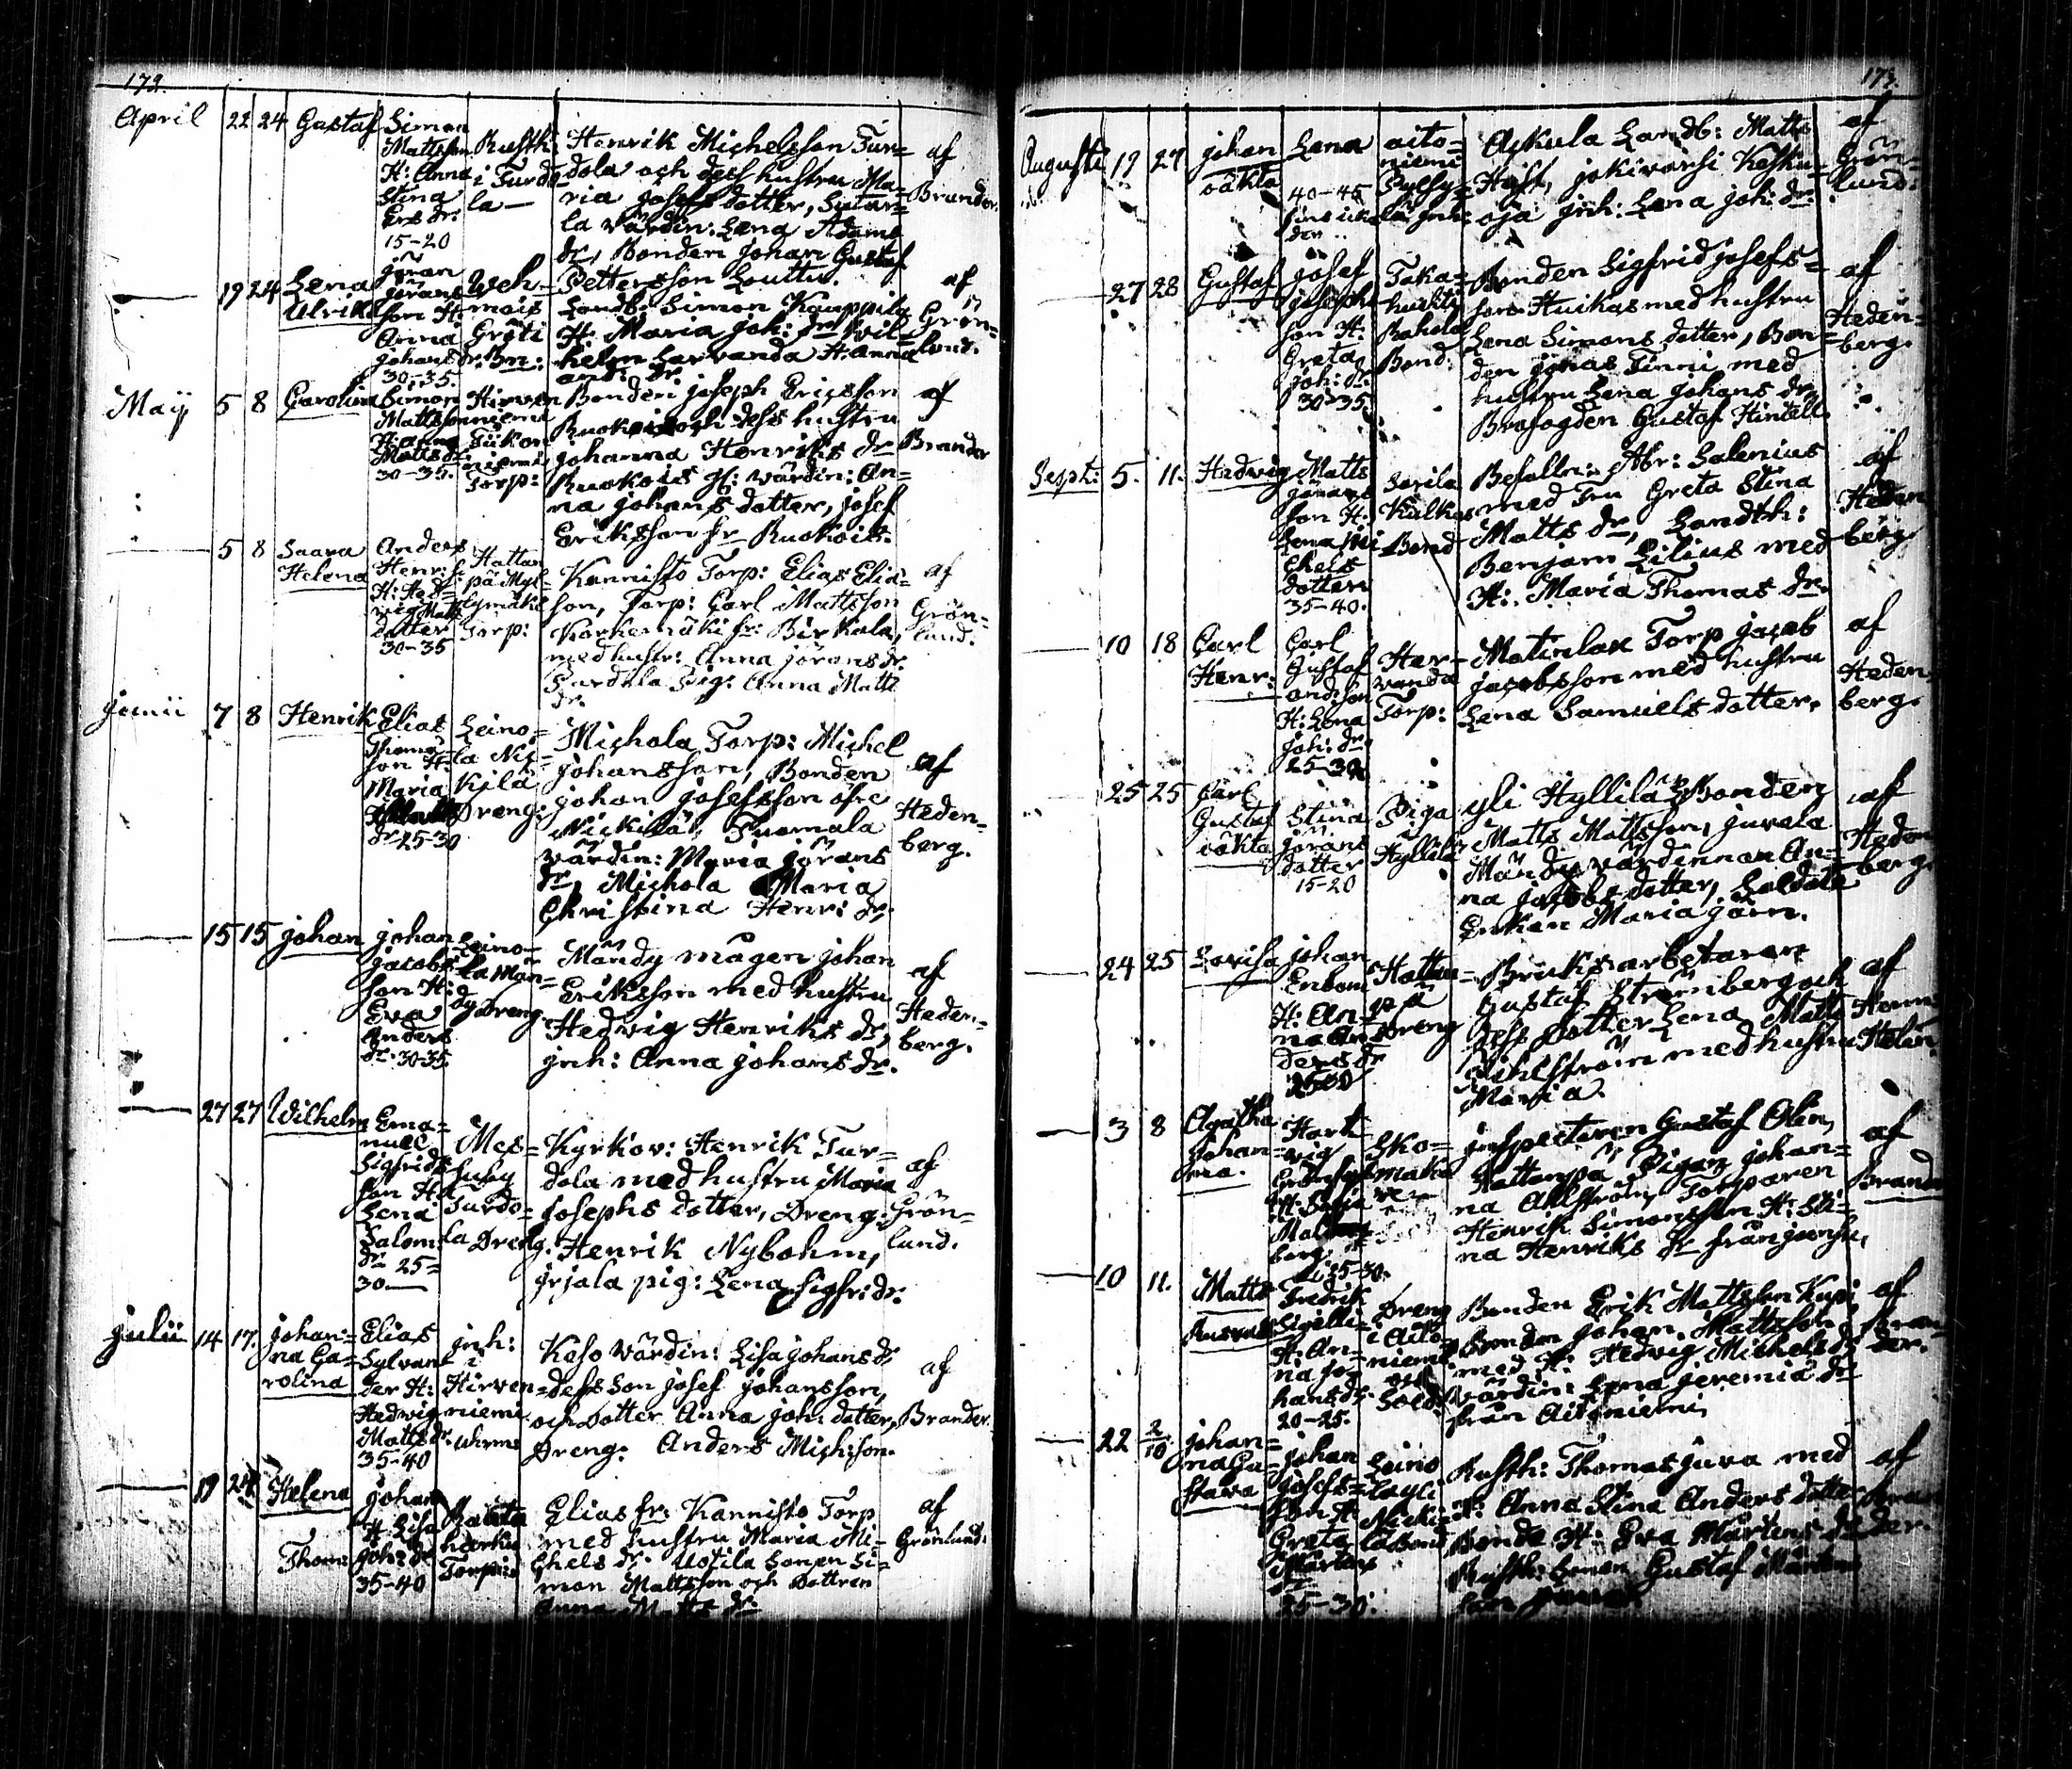 172.
April 22 24 Gustaf
Simon
Mattsson
H: Anna
Stina
Ers dr.
15-20
Rusth:
i Turdo
la
Henrik Michelsson Tur=
dola och dess hustru Ma=
ria Josefs dotter, 
la värdin: Lena Adams
dr, Bonden Johan Gustaf
Pettersson Louttu.
af
Brander.
19 24 Lena
Ulrika
Jöran
Jörans
son H:
Anna
Johans dr.
30-35.
Weh=
mais
Gröti
Bn:
Landb: Simon Kauppila
H. Maria Joh: dr Wil=
helm Sarvanda H: Anna
and: dr
af
Grön=
lund.
Maij 5 8 Carolina
Simon
Mattsson
H: Anna
Matts dr.
30-35.
Hirven
niemi
Torp:
Bonden Joseph Ericsson
Ruokois och dess hustru
Johanna Henriks dr
Ruokois gl: värdin: An=
na Johans dotter, Josef
Eriksson fr Ruokois.
af
Brander
5 8 Saara
Helena
Anders
Henr: s.
H: Hed=
vig Matts
dotter
30-35
Hattan
på Myl=
lymäki
Torp:
Kannisto Torp: Elias Elia=
son, Torp: Carl Mattsson
Korkemäki fr: Birkala,
med hustr: Anna Jörans dr.
Pardala Pig: Anna Matts
dr.
af
Grön=
lund.
Junii 7 8 Henrik
Elias
Thomas
son H:
Maria
dr 25-30
Leino=
la Nic=
kilä
Dreng:
Michola Torp: Michel
Johansson, Bonden
Johan Josefsson öfre
Nickilä, Tuomala
värdin: Maria Jörans
dr, Michola Maria
Christina Henri: dr.
af
Heden=
berg.
15 15 Johan
Johan
Jacobs
son H:
Eva
Anders
dr. 30-35.
Leino=
la Män=
dy Dreng.
Mändy mågen Johan
Eriksson med hustru
Hedvig Henriks dr,
jnh: Anna Johans dr.
af
Heden=
berg.
27 27 Wilhelm
Ema=
nuel
Sigfrids
son H:
Lena
Salom:
dr 25=
30
Mes=
suby
Turdo=
la Dreng.
Kyrkov: Henrik Tur=
dola med hustru Maria
Josephs dotter, Dreng:
Henrik Nybohm,
jrjala pig: Lena Sigfr: dr.
af
Grön=
lund.
Julii 14 17. Johan=
na Ca=
rolina
Elias
Sylvan
der H:
Hedvig
Matts dr.
35-40
jnh:
i
Hirven=
niemi
Keso värdin: Lisa Johans dr
dess son Josef Johansson,
och dotter Anna Joh: dotter,
Dreng. Anders Mich: son.
af
Brander.
19 24 Helena
Johan
Thom:
H: Lisa
Joh: dr
35-40
harku
Torp:
Elias fr: Kannisto Torp
med hustru Maria Mi=
chels dr. Uotila sonen Si=
mon Mattsson och dottren
Anna Matts dr
af
Grönlund.
173.
Augusti 19 27 Johan
oäkta
Lena
40-45
aito=
niemi
jnh:
Ackula Landb: Matts
Jokivarsi Kosku=
oja jnh: Lena Joh: dr.
af
Grön=
lund.
27 28 Gustaf
Josef
Joseph
son H:
Greta
Joh: dr.
30-35
Taka=
huchti
Rahola
Bond:
Bonden Sigfrid Josefs=
son Huikas med hustru
Lena Simons dotter, Bon=
den Jonas Finni med
hustru Lena Johans dr,
Brofogden Gustaf Hintell.
af
Heden=
berg.
Sept: 5. 11. Hedvig
Matts
Jörans
son H:
Lena Mi
chels
dotter
35-40.
Sorila
Kulkas
Bond
Befalln: Abr: Salenius
med Fru Greta Stina
Matts dr, Landth:
Benjam Lilius med
H: Maria Thomas dr.
af
Heden
berg
10 18 Carl
Henr:
Carl
Gustaf
and: son
H: Lena
Joh: dr.
25-30
Her=
vanda
Torp:
Matinlax Torp Jacob
Jacobsson med hustru
Lena Samuels dotter.
af
Heden
berg.
25 25 Carl
Gustaf
oäkta
Stina
Jörans
dotter
15-20
Piga
Hyllilä
yli Hyllilä Bonden
Matts Mattsson, Juvela
Mändy värdinnan An=
na Jacobs dotter, Soldats
Enkan Maria Järn.
af
Heden
berg.
24 25 Lovisa
Johan
Enbom
H: An=
na An
ders dr
25-30
Hattan=
på
Dreng
Bruksarbetaren
Gustaf Strömberg och
dess dotter Lena, Matts
Wihlström med hustru
Maria.
af
Herm
Helin
3 8 Agatha
Johan=
na.
Hart
wig
H: Sofia
Malm
berg
25-30.
Sko=
makare
inspectoren Gustaf Olin,
Hattanpä Pigan Johan=
na Ahlström, Torparen
Henrik Simonsson H: Sti=
na Henriks dr från
af
Brander
10 11. Matts
Fredrik
H: An=
na Jo=
hans dr
20-25.
Dreng
i Aito=
niemi
Bonden Erik Mattsson
Bonden Johan Mattsson
med H: Hedvig Michels dr
värdin: Lena Jeremiæ dr
från Aitoniemi
af
Bran=
der.
22 2/10 Johan=
na Gu=
stava
Johan
Josefs=
son H:
Greta
Mårtens
dr
25-30.
Leino
la yli
Nicki=
lä Bond
Rusth: Thomas Juva med
H: Anna Stina Anders dotter
Bonde H: Eva Mårtens dr
Rusth: sonen Gustaf Mårtens
son
af
Bran
der.